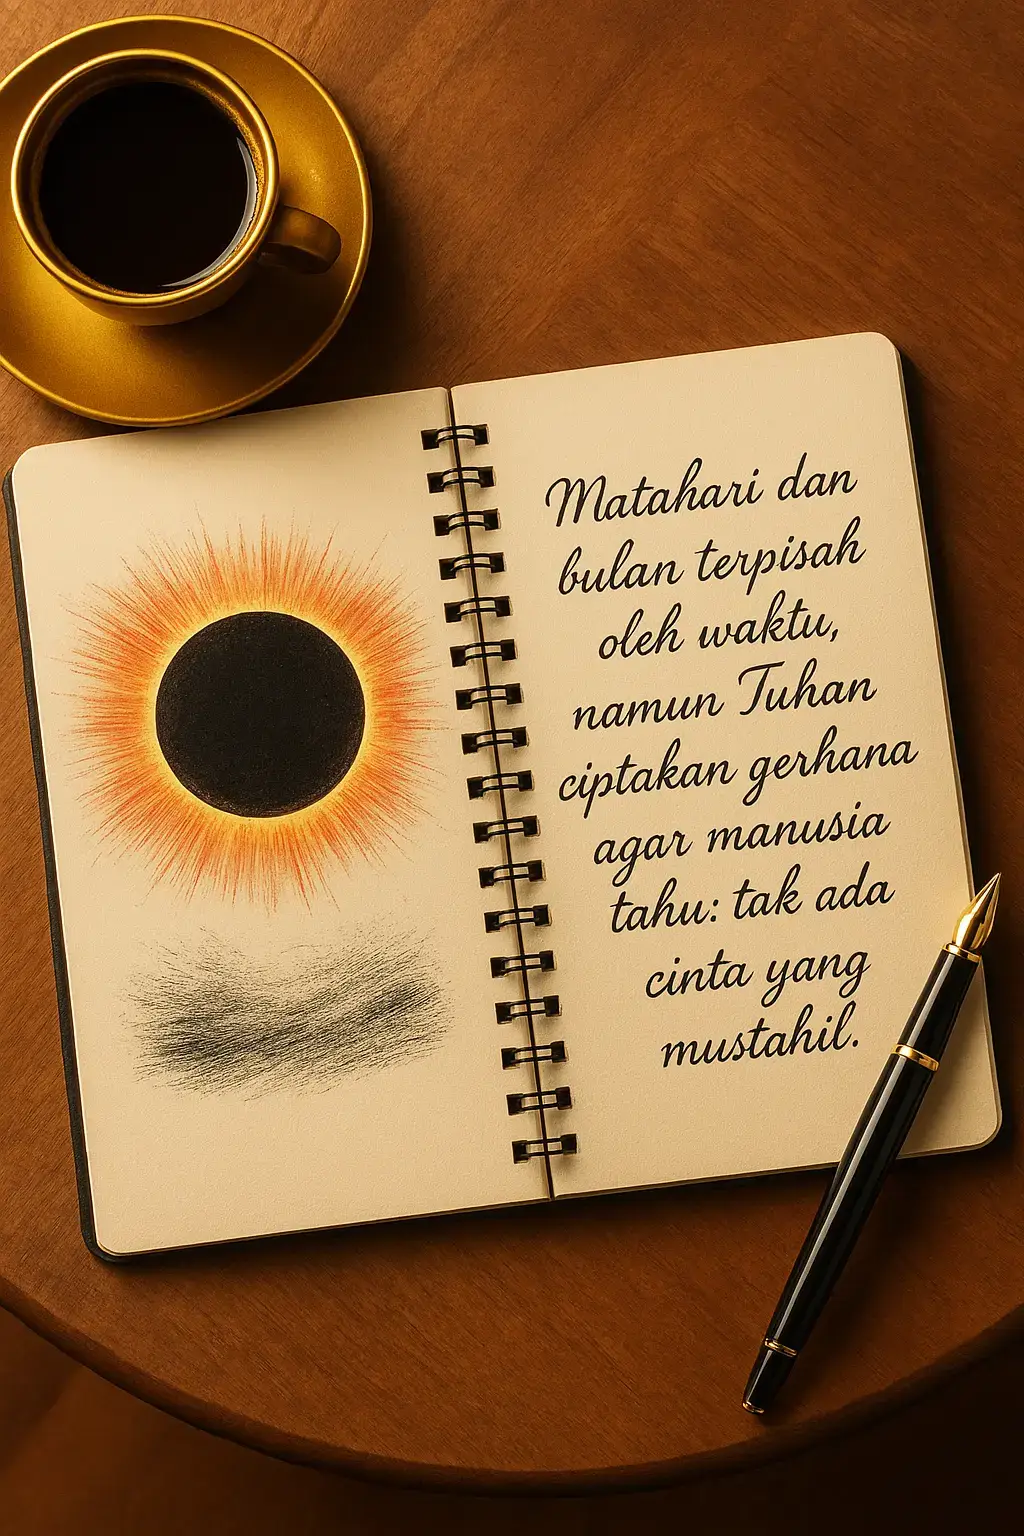 Matahari dan
bulan terpisah
oleh waktu,
namun Tuhan
ciptakan gerhana
agar manusia
tahu: tak ada
cinta yang
mustahil.